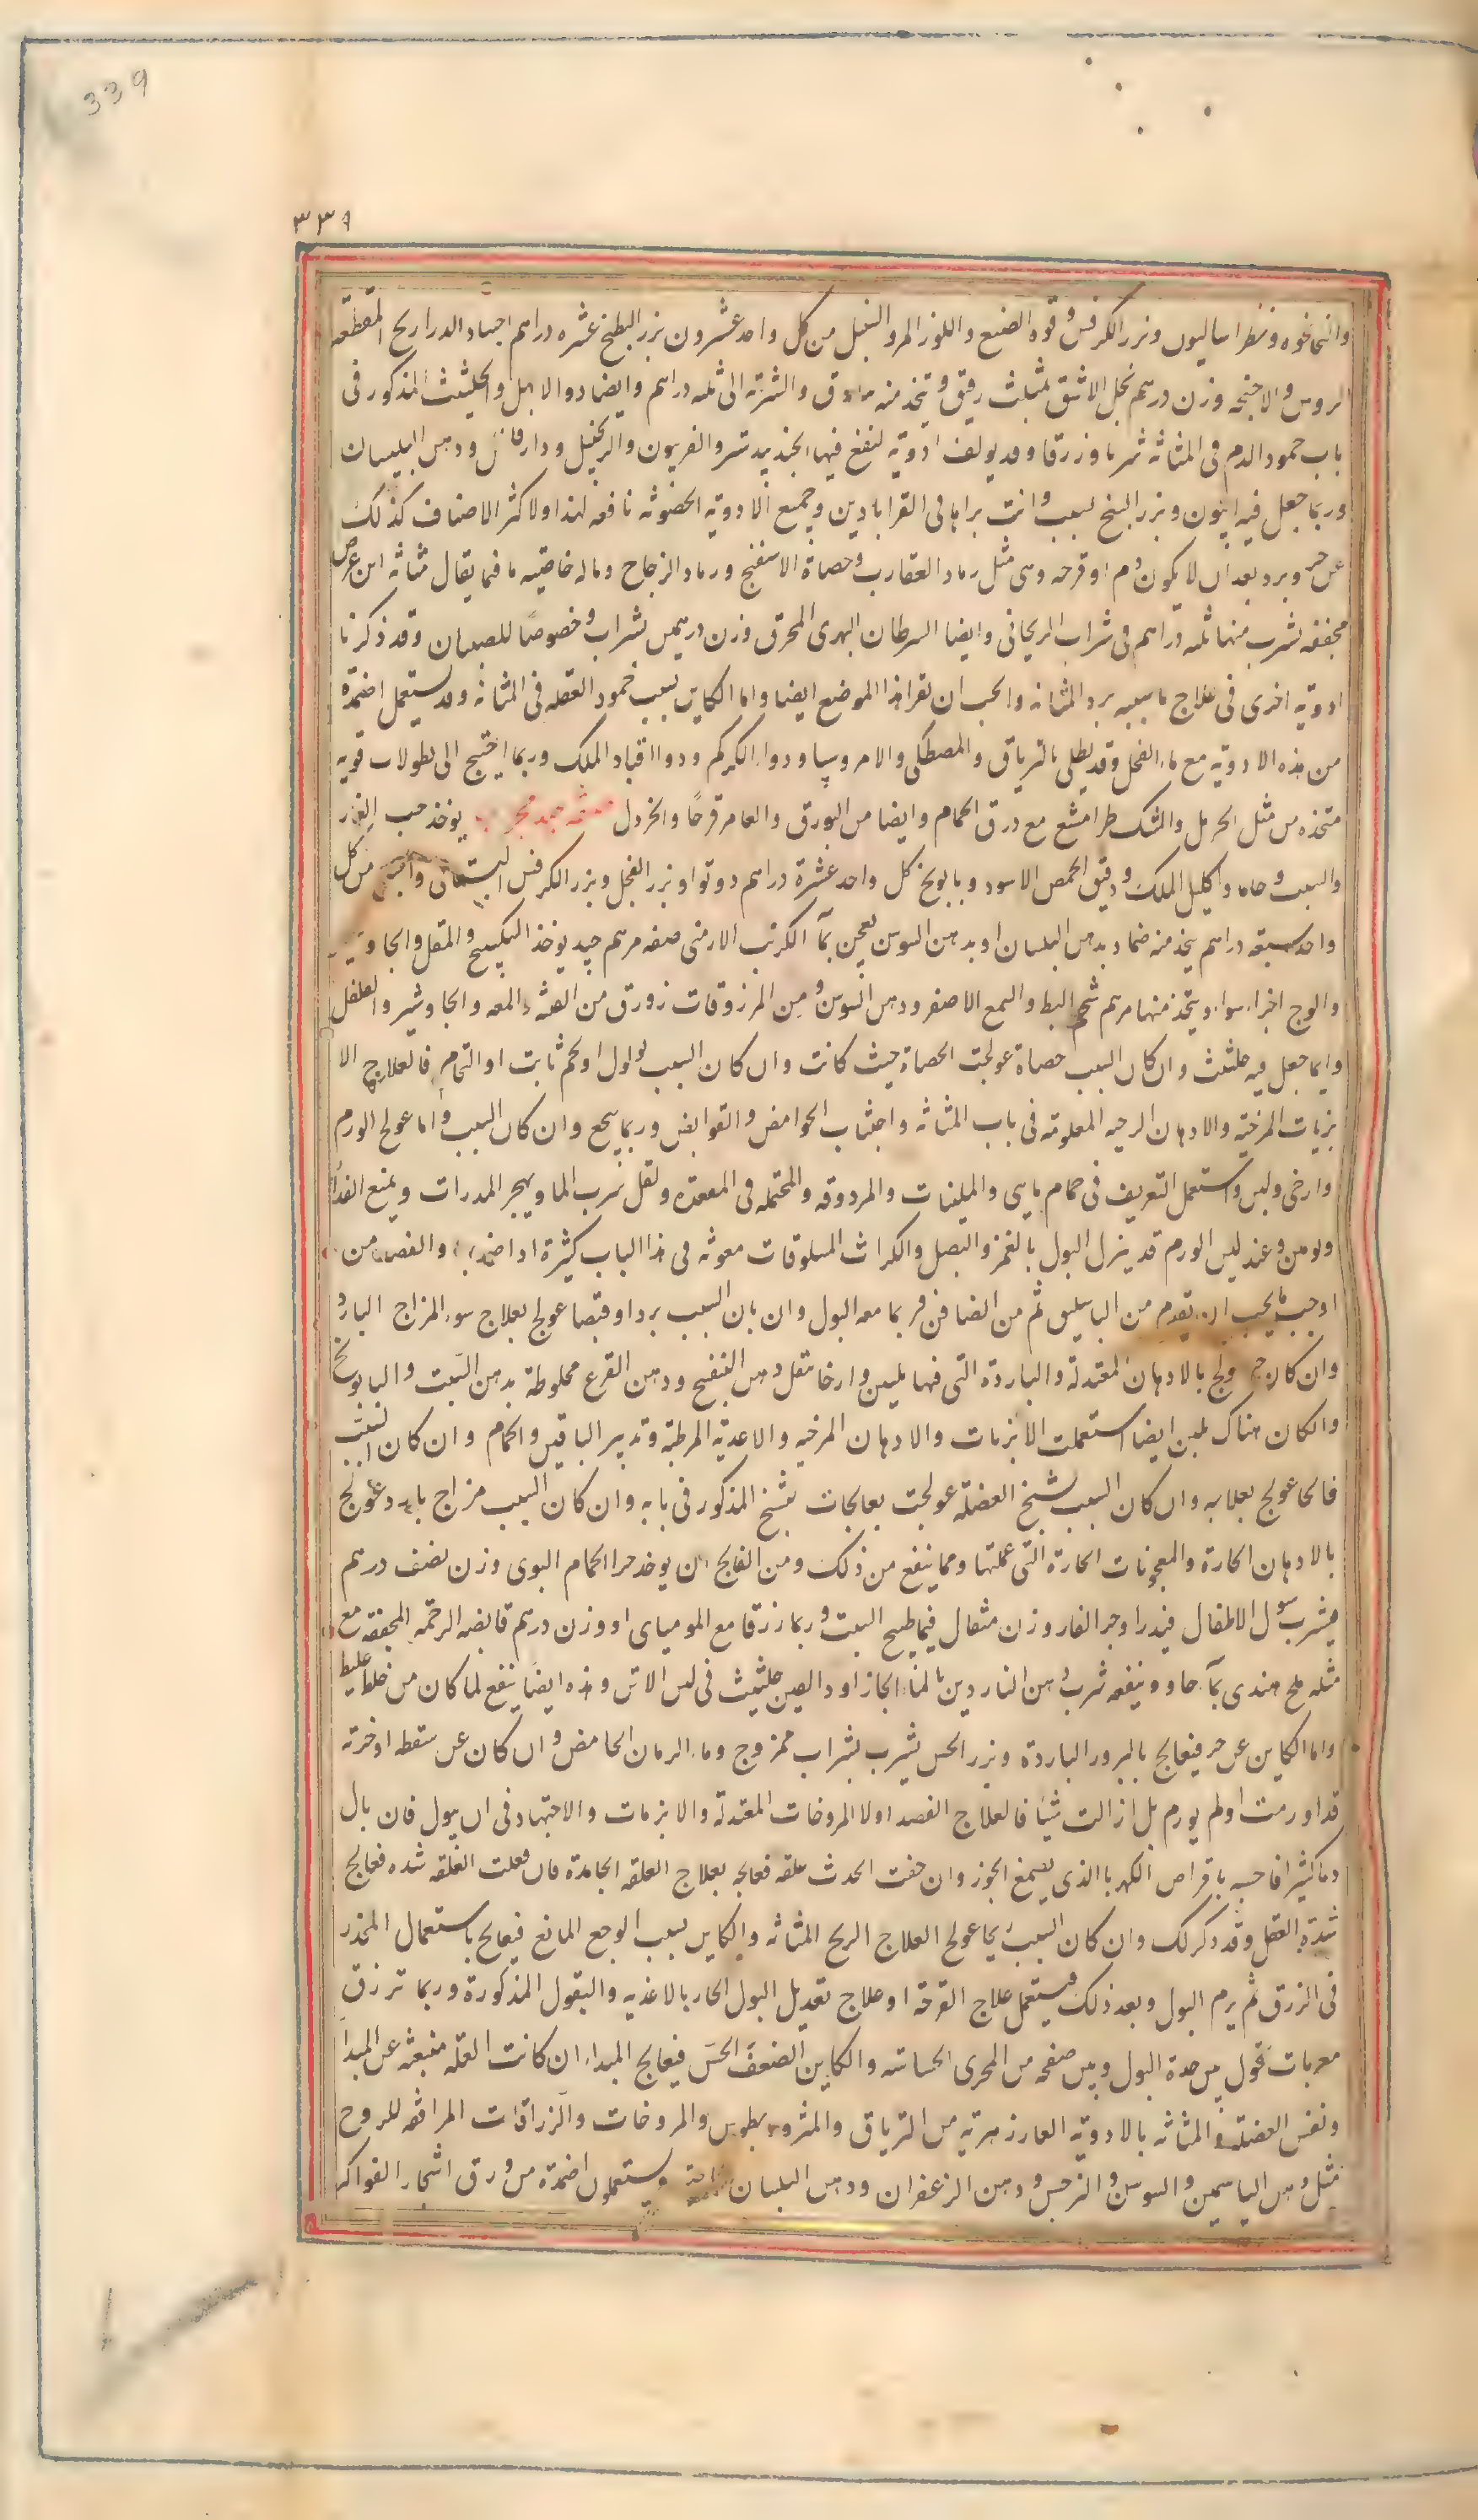 339
٣٣٩
والنانخوه وفطراساليون وبزر الكرفس وفوة الصبغ واللوز المر والسنبل من كل واحد عشرون بزر البطيخ عشره دراهم اجساد الدراريح المقطعه
الروس والاجنحه وزن درهم تحل الاشق بمثلث رقيق ويتخذ منه والشربة الى ثلثه دراهم وايضا دوا الابهل والحلتيث المذكور فى
باب جمود الدم فى المثانه شربا وزرقا وقد يولف ادوية لنفخ فيها الجندبيدستر والفربيون والزنجبيل ودارفلفل ودهن البلسان
وربما جعل فيه افيون وبزر البنج لسبب وانت تراها فى القرابادين وجميع الادويه الحصويه نافعه لهذا ولاكثر الاصناف كذلك
عن حر وبرد بعد ان لا يكون ورم او قرحه وهى مثل رماد العقارب وحصاة الاسفنج ورماد الزجاج وماله خاصيه ما فيما يقال مثانه ابن عرس
مجففه يشرب منها ثلثه دراهم فى شراب الريحانى وايضا السرطان النهرى المحرق وزن درهمين بشراب وخصوصا للصبيان وقد ذكرنا
ادويه اخرى فى علاج ما سببه برد المثانه والحب ان تقرا هذا الموضع ايضا واما الكاين بسبب جمود العلقه فى المثانه وقد يستعمل اضمدة
من هذه الادويه مع ماء الفجل وقد يطلى بالترياق والمصطكى والامروسيا ودواء الكركم ودواء اقباد الملك وربما احتيج الى نطولات قويه
متخذه من مثل الحرمل والمشكطرامشيع مع درق الحمام وايضا من البورق والعاقرقرحا والخردل صفه جيد مجرب يوخذ حب الغار
والشبت وحاما واكليل الملك ودقيق الحمص الاسود وبابونج كل واحد عشرة دراهم دوقوا وبزر الفجل وبزر الكرفس البستانى من كل
واحد سبعه دراهم يتخذ منه ضماد بدهن البلسان او بدهن السوسن يعجن بماء الكرنب الارمنى صفه مرهم جيد يوخذ السكبينج والمقل والجاوشير
والوج اجزاء سواء ويتخذ منها مرهم بشحم البط والشمع الاصفر ودهن السوسن ومن المزروقات زروق من القنه والميعه والجاوشير والفلفل
وايما جعل فيه حلتيث وان كان السبب حصاة عولجت الحصاة حيث كانت وان كان السبب ثولول او لحم ثابت او التحام فالعلاج الا
بزنات المرخيه والادهان المرخيه المعلومه فى باب المثانه واجتناب الحوامض والقوابض وربما نجع وان كان السبب ورما عولج الورم
وارخى ولين واستعمل التعريق فى حمام يابس والملينات والمزروقه والمحتمله فى المقعده ولقل شرب الما ويهجر المدرات ويمنع الغذا
ولو من وعند لين الورم قد ينزل البول بالغمز والبصل والكراث المسلوقات معونه فى هذا الباب كثيرة اذا ضمدا والفصد من
اوجب ما يجب ان يقدم من الباسليق ثم من الصافن فربما معه البول وان بان السبب بردا وقبضا عولج بعلاج سوء المزاج البارد
وان كان حر عولج بالادهان المعتدله والباردة التى فيها تليين وارخا مثل دهن البنفسج ودهن القرع مخلوطة بدهن الشبت والبابونج
وان كان هناك ايضا استعملت الابزنات والادهان المرخيه والاغديه المرطبه وتدبير الناقهين والحمام وان كان السبب
فالحا عولج بعلاجه وان كان السبب تشنج العضله عولجت بعالجات تشنج المذكور فى بابه وان كان السبب مزاج بارد عولج
بالادهان الحارة والمعجونات الحارة التى علمتها ومما ينفع من ذلك ومن الفالج ان يوخذ خرا الحمام البوى وزن نصف درهم
فيشرب ببول الاطفال فيدر او خر الفار وزن مثقال فيما طبيخ الشبت وربما زرقا مع الموميا او وزن درهم قانصه الرخمه المجففه مع
مثله ملح هندى بماء حار وينفعه شرب دهن الناردين بالماء الحار او دانقين حلتيث فى لبن الاتن وهذه ايضا ينفع لما كان من خلط غليظ
واما الكاين عن حر فيعالج بالبزور الباردة وبزر الخس يشرب بشراب ممزوج وماء الرمان الحامض وان كان عن سقطه او ضربه
قد اورمت او لم يورم بل ازالت شيئا فالعلاج الفصد اولا المروخات المعتدله والابزنات والاجتهاد فى ان يبول فان بال
دما كثيرا فاحبسه باقراص الكهربا الذى بصمغ الجوز وان خفت الحدث علقه فعالجه بعلاج العلقه الجامدة فان فعلت العلقه شده فعالج
شدة العقل وقد ذكر لك وان كان السبب ريحا عولج العلاج الريح المثانه والكاين بسبب الوجع المانع فيعالج باستعمال المخدر
فى الزرق ثم يرم البول وبعد ذلك فيستعمل علاج القرحه او علاج تعديل البول الحار بالاغذيه والبقول المذكورة وربما ترزق
مغريات تحول بين حدة البول وبين صفحه من المجرى الحساسه والكاين الضعف الحس فيعالج المبداء ان كانت العله منبعثه عن المبدا
ونفس العضله والمثانه بالادويه الفادزهريه من الترياق والمثروديطوس والمروخات والزراقات الموافقه للروح
مثل دهن الياسمين والسوسن والنرجس ودهن الزعفران ودهن البلسان خاصة ويستعملون اضمدة من ورق اشجار الفواكه